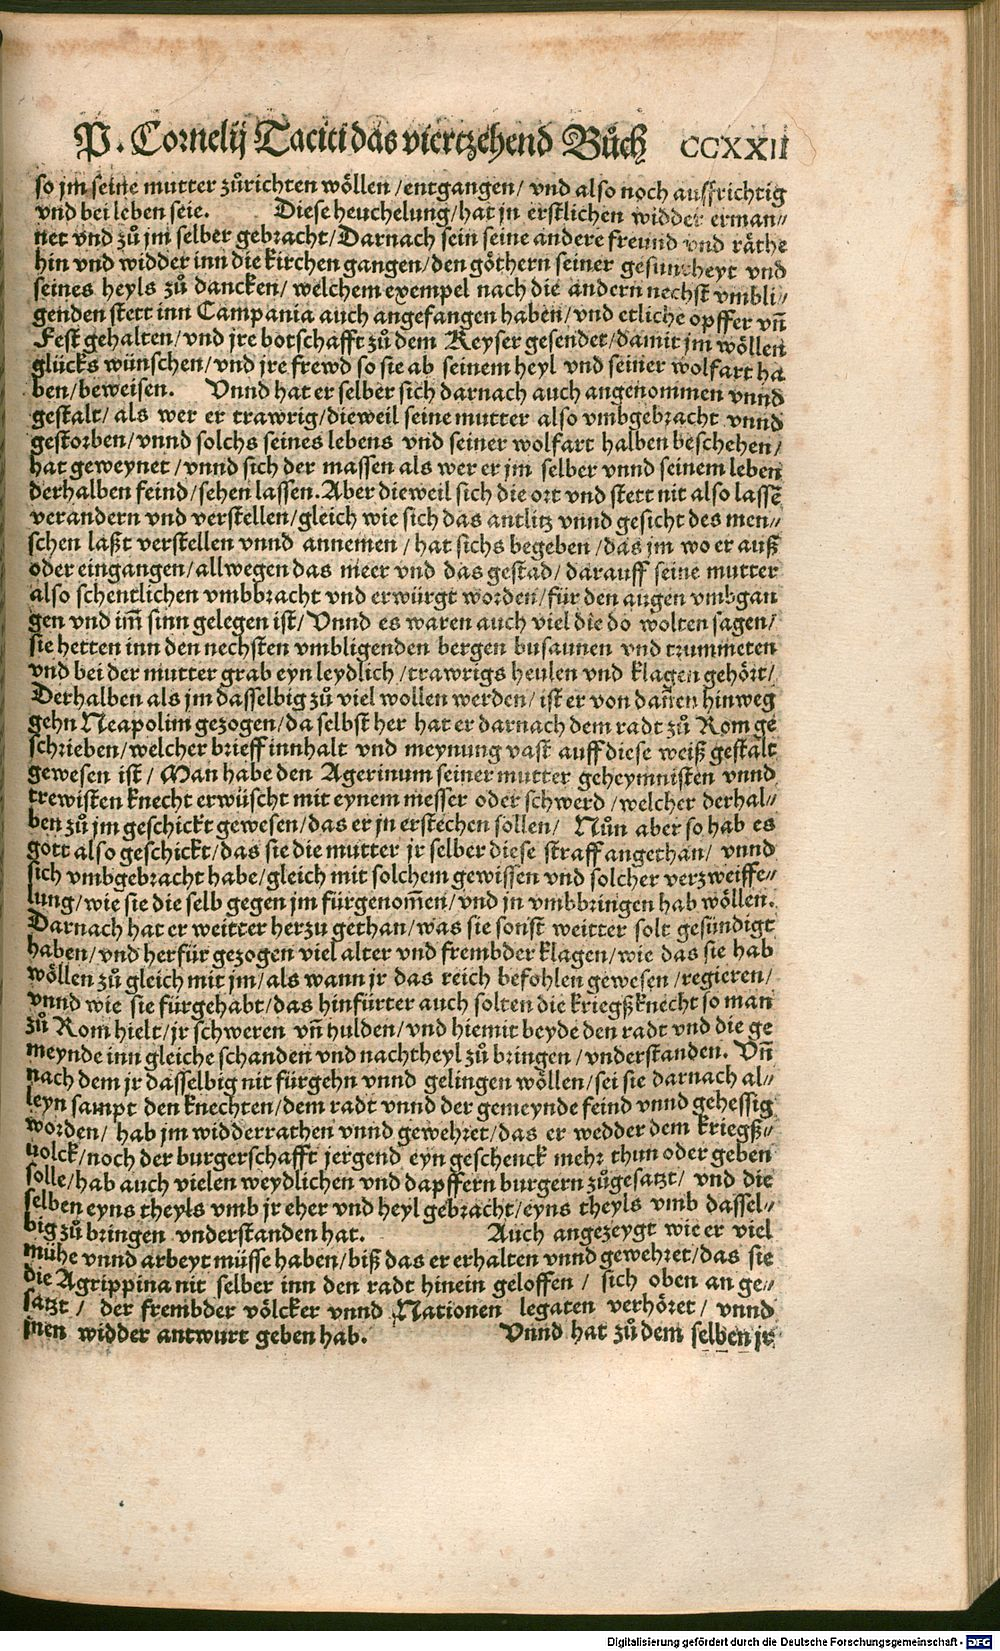 P. Cornelij Taciti das viertzehend Bůch CCXXII
so jm seine mutter zůrichten wöllen /entgangen/ vnd also noch auffrichtig
vnd bei leben seie. Diese heuchelung/hat jn erstlichen widder erman⸗
net vnd zů jm selber gebracht/Darnach sein seine andere freund vnd räthe
hin vnd widder inn die kirchen gangen/den göthern seiner gesuntheyt vnd
seines heyls zů dancken/ welchem exempel nach die andern nechst vmbli⸗
genden stett inn Campania auch angefangen haben/vnd etliche opffer vn̄
Fest gehalten/vnd jre botschafft zů dem Keyser gesendet/damit jm wöllen
glücks wünschen/vnd jre frewd so sie ab seinem heyl vnd seiner wolfart ha
ben/beweisen. Vnnd hat er selber sich darnach auch angenommen vnnd
gestalt/ als wer er trawrig/dieweil seine mutter also vmbgebracht vnnd
gestorben/vnnd solchs seines lebens vnd seiner wolfart halben beschehen/
hat geweynet /vnnd sich der massen als wer er jm selber vnnd seinem leben
derhalben feind/sehen lassen. Aber dieweil sich die ort vnd stett nit also lassē
verandern vnd verstellen/gleich wie sich das antlitz vnnd gesicht des men⸗
schen laßt verstellen vnnd annemen / hat sichs begeben /das jm wo er auß
oder eingangen/allwegen das meer vnd das gestad/ darauff seine mutter
also schentlichen vmbbracht vnd erwürgt worden/für den augen vmbgan
gen vnd im̄ sinn gelegen ist/ Vnnd es waren auch viel die do wolten sagen/
sie hetten inn den nechsten vmbligenden bergen busaunen vnd trummeten
vnd bei der mutter grab eyn leydlich /trawrigs heulen vnd klagen gehört/
Derhalben als jm dasselbig zů viel wollen werden/ ist er von dan̄en hinweg
gehn Neapolim gezogen/da selbst her hat er darnach dem radt zů Rom ge
schrieben/welcher brieff innhalt vnd meynung vast auff diese weiß gestalt
gewesen ist/ Man habe den Agerinum seiner mutter geheymnisten vnnd
trewisten knecht erwüscht mit eynem messer oder schwerd /welcher derhal⸗
ben zů jm geschickt gewesen/das er jn erstechen sollen/ Nůn aber so hab es
gott also geschickt/das sie die mutter jr selber diese straff angethan/ vnnd
sich vmbgebracht habe/gleich mit solchem gewissen vnd solcher verzweiffe⸗
lung/wie sie die selb gegen jm fürgenom̄en/vnd jn vmbbringen hab wöllen.
Darnach hat er weitter herzu gethan/was sie sonst weitter solt gesündigt
haben/vnd herfür gezogen viel alter vnd frembder klagen/wie das sie hab
wöllen zů gleich mit jm/als wann jr das reich befohlen gewesen /regieren/
vnnd wie sie fürgehabt/das hinfürter auch solten die kriegßknecht so man
zů Rom hielt/jr schweren vn̄ hulden/vnd hiemit beyde den radt vnd die ge
meynde inn gleiche schanden vnd nachtheyl zů bringen /vnderstanden. Vn̄
nach dem jr dasselbig nit fürgehn vnnd gelingen wöllen/sei sie darnach al⸗
leyn sampt den knechten/dem radt vnnd der gemeynde feind vnnd gehessig
worden/ hab jm widderrathen vnnd gewehret/das er wedder dem kriegß⸗
uolck/noch der burgerschafft jergend eyn geschenck mehr thun oder geben
solle/hab auch vielen weydlichen vnd dapffern burgern zůgesatzt/ vnd die
selben eyns theyls vmb jr eher vnd heyl gebracht/eyns theyls vmb dassel⸗
big zů bringen vnderstanden hat. Auch angezeygt wie er viel
mühe vnnd arbeyt müsse haben/biß das er erhalten vnnd gewehret/das sie
die Agrippina nit selber inn den radt hinein geloffen / sich oben an ge⸗
satzt / der frembder völcker vnnd Nationen legaten verhöret/ vnnd
jnen widder antwurt geben hab. Vnnd hat zů dem selben jr
Digitalisierung gefördert durch die Deutsche Forschungsgemeinschaft - DFG